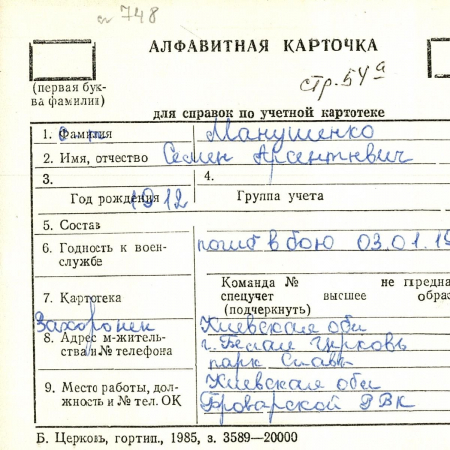 748
АЛФАВИТНАЯ КАРТОЧКА
(первая бук-
ва фамилии)
стр. 54а
для справок по учетной картотеке
1. Фамилия Манушенко
2. Имя, отчество Семен Арсентиевич
3. Год рождения 1912
4. Группа учета
5. Состав
6. Годность к воен-
службе
погиб в бою 03.01.19
7. Картотека
Команда № не предна
спецучет высшее обра
(подчеркнуть)
Захоронен
8. Адрес м-житель-
ства и № телефона
Киевская обл
г. Белая Церковь
парк Славы
9. Место работы, дол-
жность и № тел. ОК
Киевская обл
Броварской РВК
Б. Церковь, гортип., 1985, з. 3589—20000